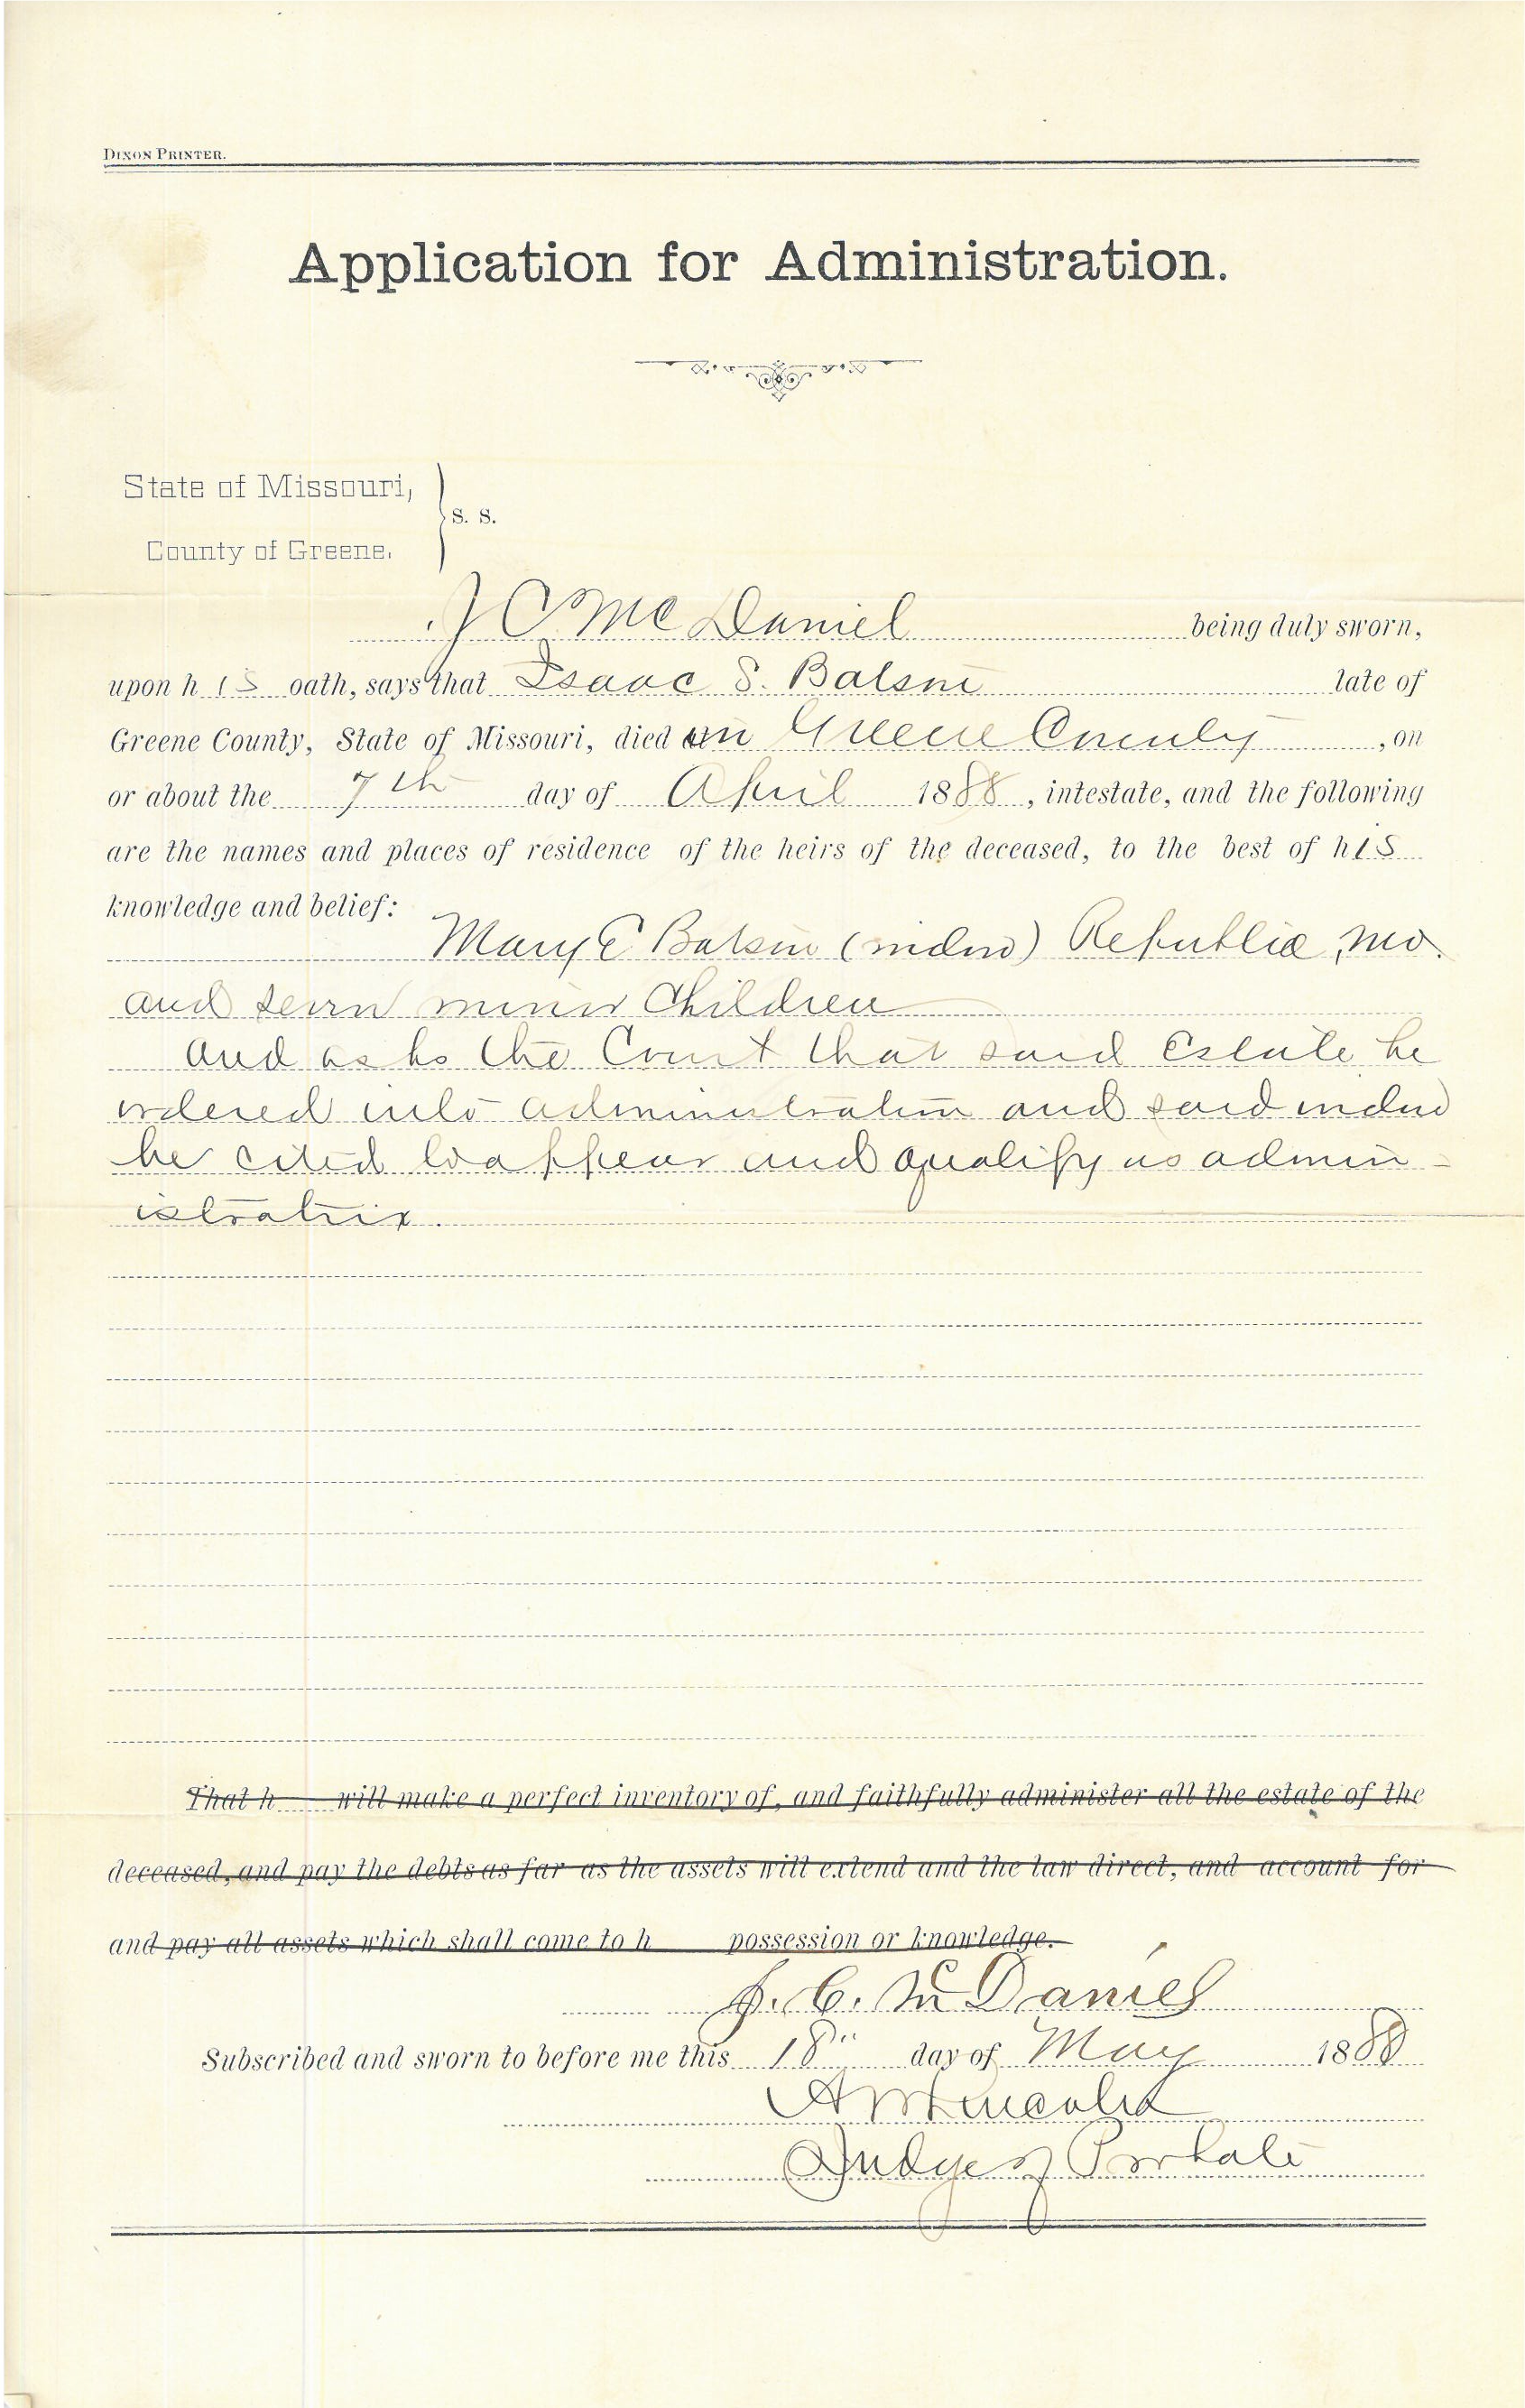 DIXON PRINTER.
Application for Administration.
State of Missouri,
S. S.
County of Greene.
J C McDaniel being duly sworn,
upon his oath, says that Isaac S. Batson late of
Greene County, State of Missouri, died in Greene County, on
or about the 7th day of April 1888, intestate, and the following
are the names and places of residence of the heirs of the deceased, to the best of his
knowledge and belief:
Mary E Batson (widow) Republic, Mo.
and seven minor Children
and asks the Court that said Estate be
ordered into administration and said widow
be cited to appear and qualify as admin-
istratrix.
That h will make a perfect inventory of, and faithfully administer all the estate of the
deceased, and pay the debts as far as the assets will extend and the law direct, and account for
and pay all assets which shall come to h possession or knowledge.
J. C. McDaniel
Subscribed and sworn to before me this 18" day of May 1888
Lincoln
Judge of Probate